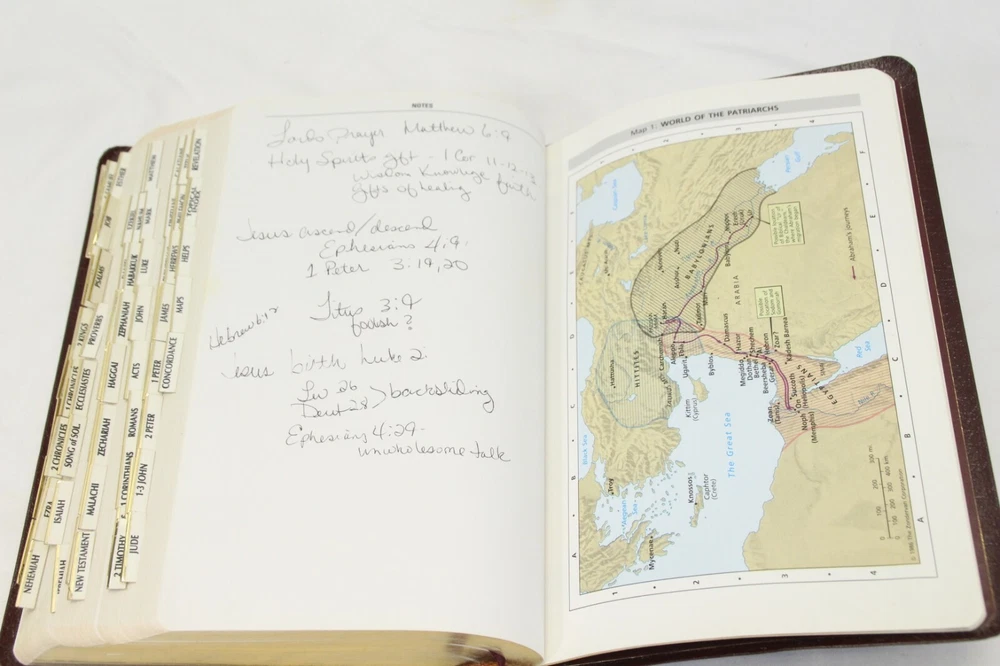 NEHEMIAH
EZRA
2 CHRONICLES
1 CHRONICLE
KINGS
PSALMS
JOB
ESTHER
ISAIAH
SONG of SOL.
ECCLESIASTES
PROVERBS
NEW TESTAMENT
MALACHI
ZECHARIAH
HAGGAI
ZEPHANIAH
HABAKKUK
2 TIMOTHY
1 CORINTHIANS
ROMANS
ACTS
JOHN
LUKE
MARK
MATTHEW
JUDE
1-3 JOHN
2 PETER
1 PETER
JAMES
HEBREWS
CONCORDANCE
MAPS
HELPS
REVELATION
NOTES
Lords Prayer Matthew 6:9
Holy Spirits gft - 1 Cor 11-12-13
Wisdom Knowledge faith
gfts of healing
Jesus ascend/descend
Ephesians 4:9
1 Peter 3:19,20
Titus 3:9
foolish ?
Hebrew 6:1
Jesus birth Luke 2:
Lev 26
Deut 28 > backsliding
Ephesians 4:29-
unwholesome talk
Map 1: WORLD OF THE PATRIARCHS
Caspian Sea
Persian Gulf
Black Sea
Aegean Sea
The Great Sea
Red Sea
HITTITES
BABYLONIANS
EGYPTIANS
ARABIA
Troy
Mycenae
Knossos
Caphtor
(Crete)
Kittim
(Cyprus)
Haran
Carchemish
Aleppo
Ebla
Ugarit
Byblos
Damascus
Hazor
Megiddo
Dothan
Shechem
Bethel
Ai
Hebron
Gerar
Beersheba
Zoar?
Kadesh Barnea
Succoth
On
(Heliopolis)
Zoan
(Tanis)
Noph
(Memphis)
Mari
Nineveh
Nuzi
Babylon
Nippur
Erech
Ur
Possible location of Sodom and Gomorrah
Abraham's journeys
© 1986 The Zondervan Corporation